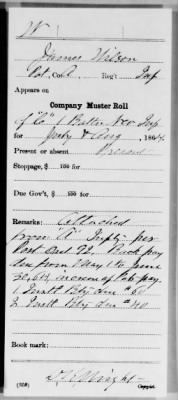 W
James Wilson
Pvt, Co. A Reg't Inf
Appears on
Company Muster Roll
of "C" 1 Battn Nev Inf
for July & Aug 1864.
Present or absent. Present
Stoppage, $ 100 for
Due Gov't, $ 100 for
Remarks: Attached
from "A" Infty per
Back pay
due from 1 May 1 to June
20, 64 increase of pay
1 Install Bty due $
2 Install Bty due $40
Book mark:
(358)
Copyist.